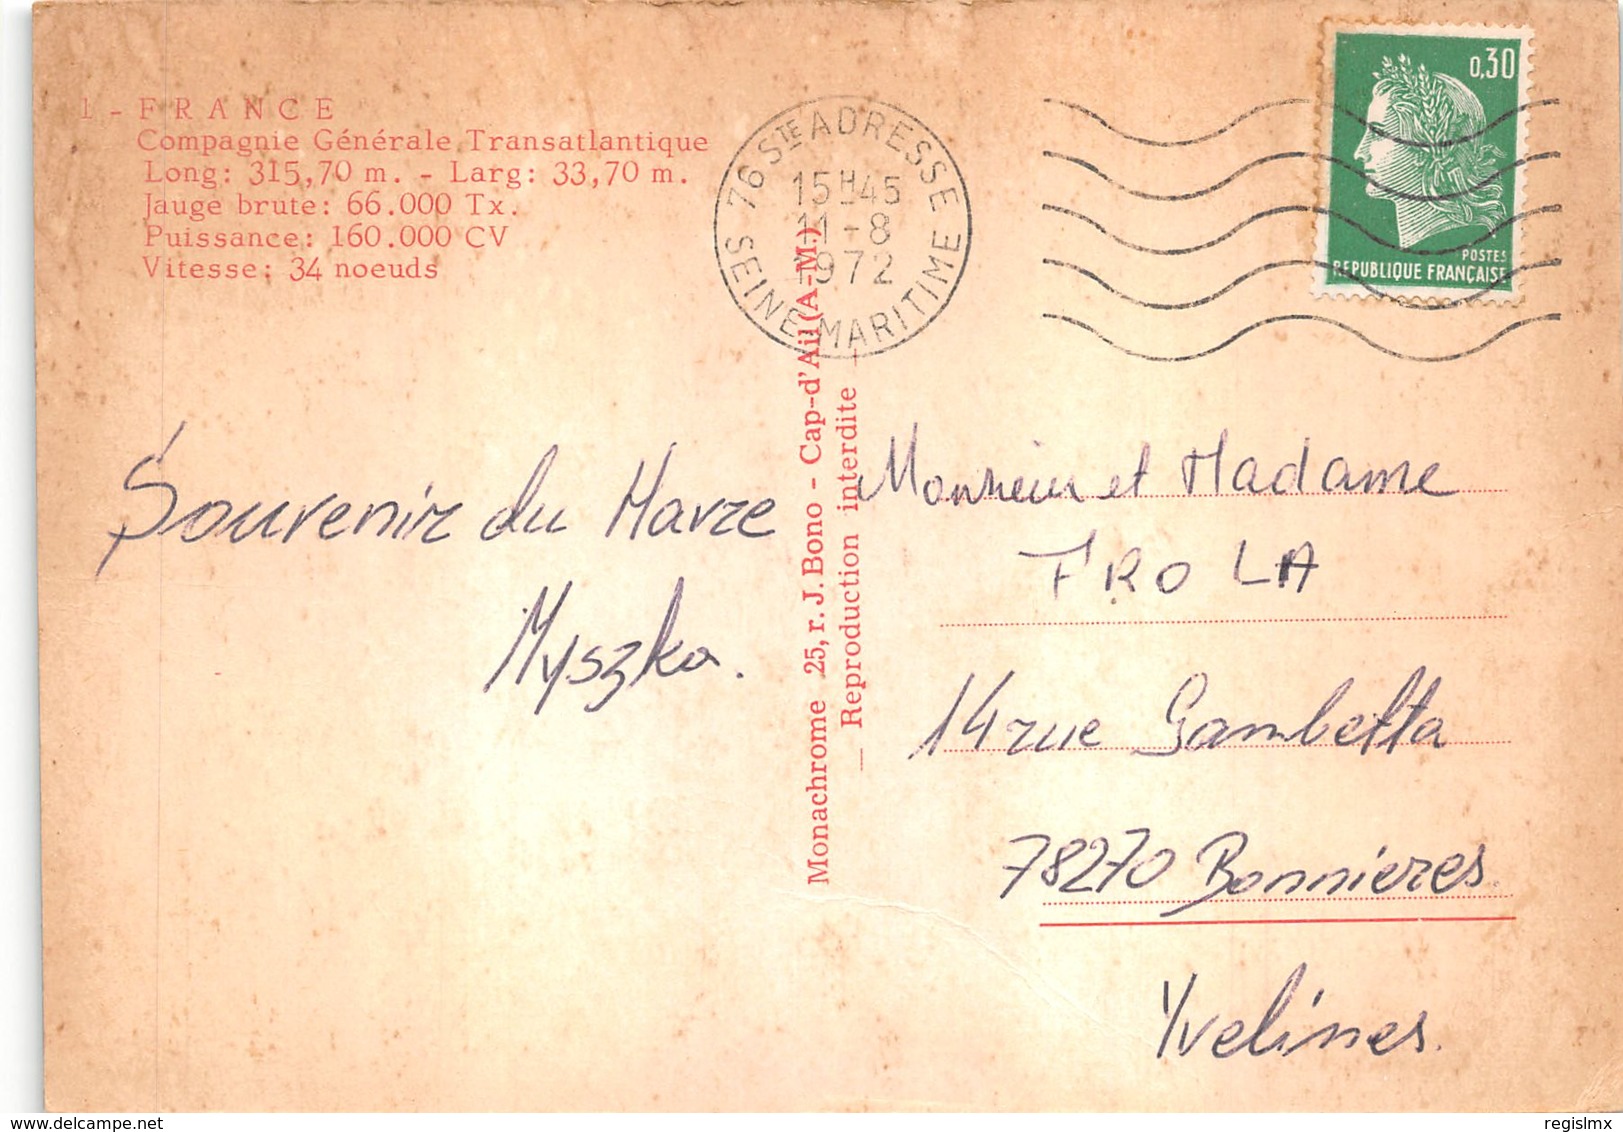 1 - FRANCE
Compagnie Générale Transatlantique
Long: 315,70 m. - Larg: 33,70 m.
Jauge brute: 66.000 Tx.
Puissance: 160.000 CV
Vitesse: 34 noeuds
76 STE ADRESSE
15H45
11-8
1972
SEINE-MARITIME
0,30
POSTES
REPUBLIQUE FRANÇAISE
Souvenir du Havre
Myszka.
Monachrome 25, r. J. Bono - Cap-d'Ail (A-M.)
Reproduction interdite
Monsieur et Madame
FROLA
14 rue Gambetta
78270 Bonnieres
Yvelines.
delcampe.net
regislmx